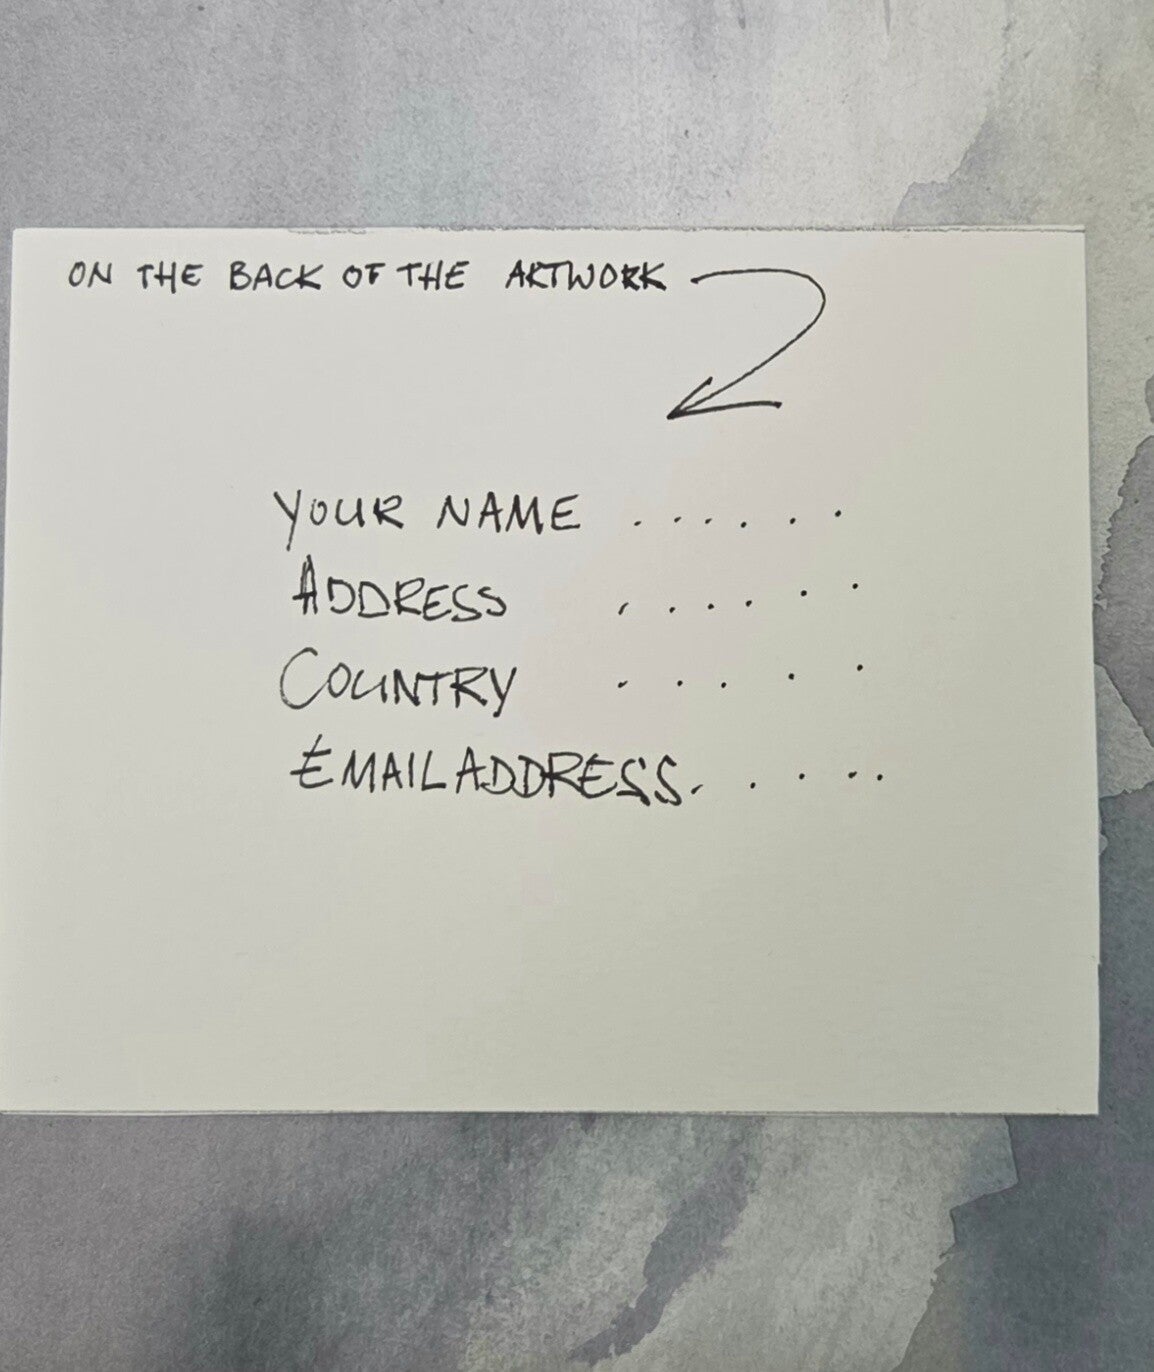 ON THE BACK OF THE ARTWORK
YOUR NAME ......
ADDRESS ......
COUNTRY .....
EMAIL ADDRESS.....